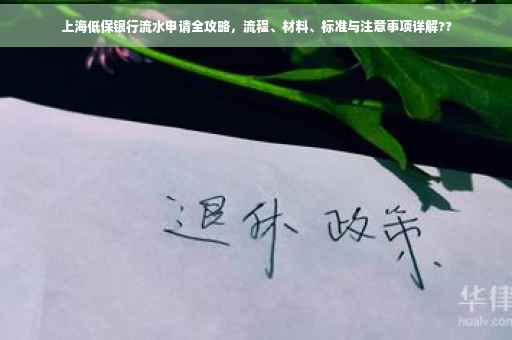 上海低保银行流水申请全攻略，流程、材料、标准与注意事项详解??
退休 政策
华律
hualv.com